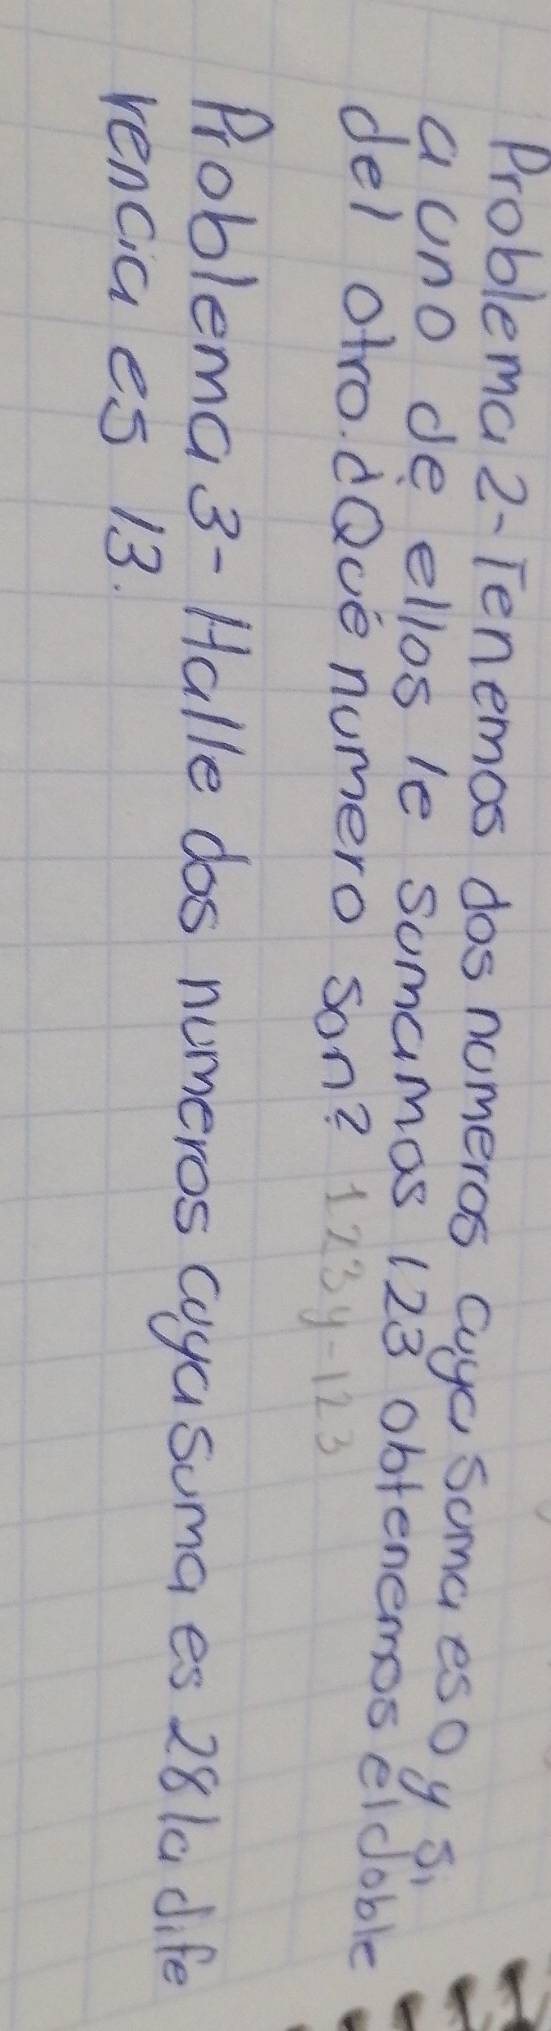 Problema 2- Tenemos dos numeros cuya suma es 0 y si
a uno de ellos le sumamos 123 obtenemos el doble
del otro. ¿Qué numero son? 123 y -123
Problema 3- Halle dos numeros cuya suma es 28 la dife
rencia es 13.